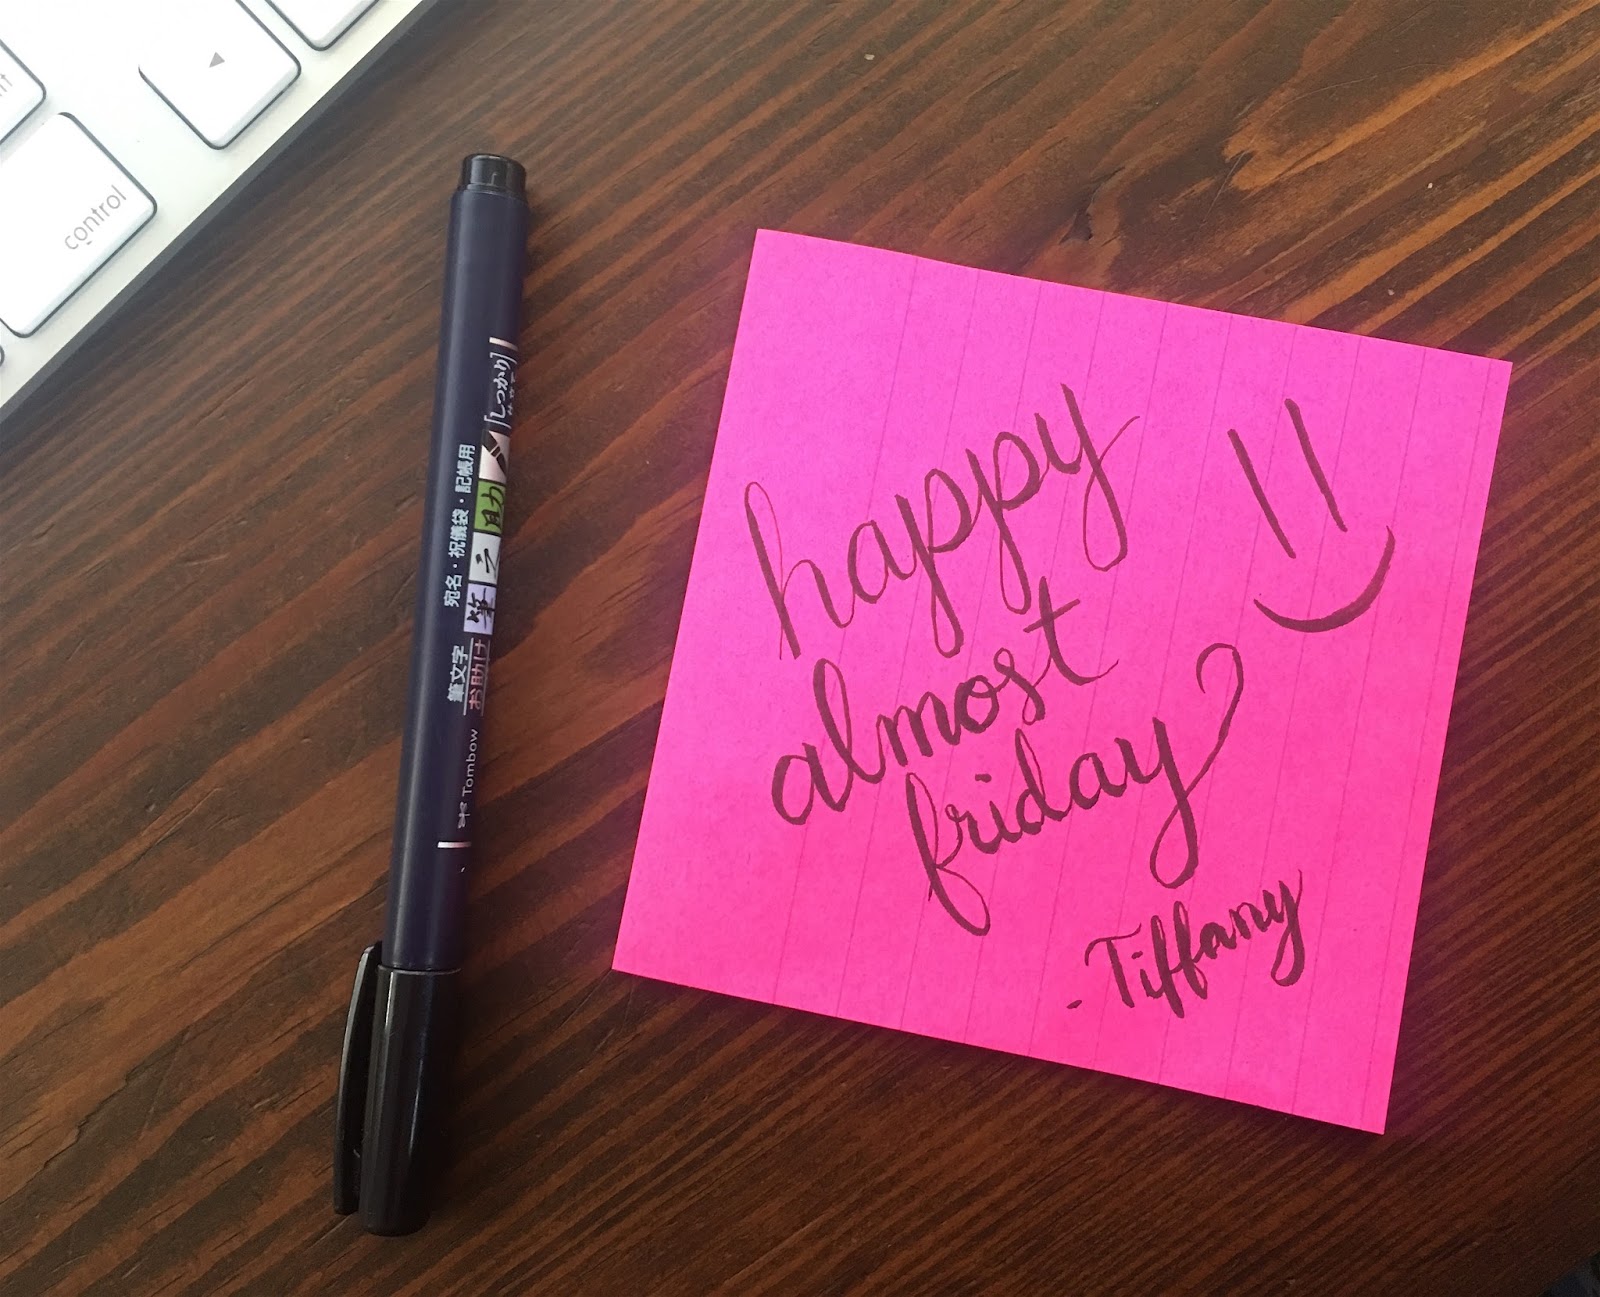 control
「しっかり」
宛名・祝儀袋・記帳用
筆之助
筆文字
お助け
Tombow
happy
almost
friday
-Tiffany